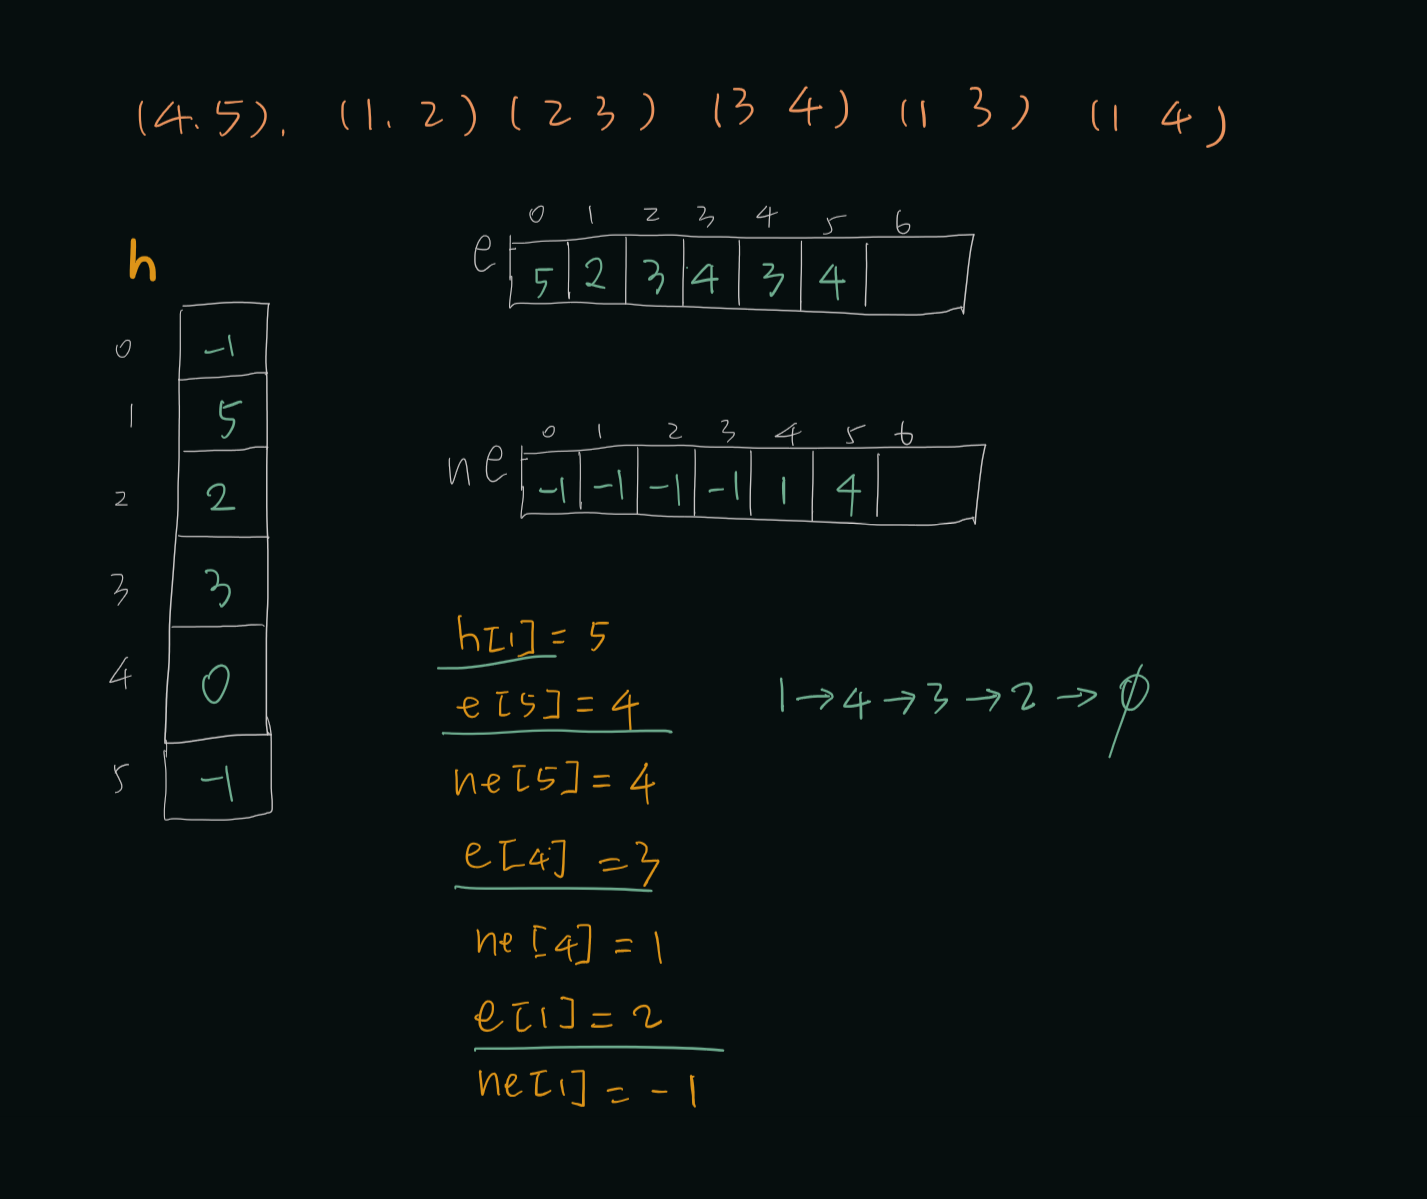 (4.5). (1.2) (2 3) (3 4) (1 3) (1 4)
h
0 -1
1 5
2 2
3 3
4 0
5 -1
0 1 2 3 4 5 6
e 5 2 3 4 3 4
0 1 2 3 4 5 6
ne -1 -1 -1 -1 1 4
h[1] = 5
e[5] = 4
ne[5] = 4
e[4] = 3
ne[4] = 1
e[1] = 2
ne[1] = -1
1→4→3→2→∅